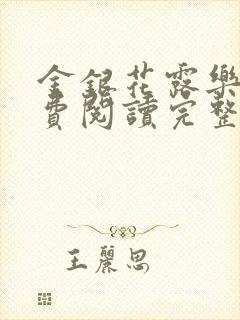 金銀花露樂
費閱讀完整
王麗思